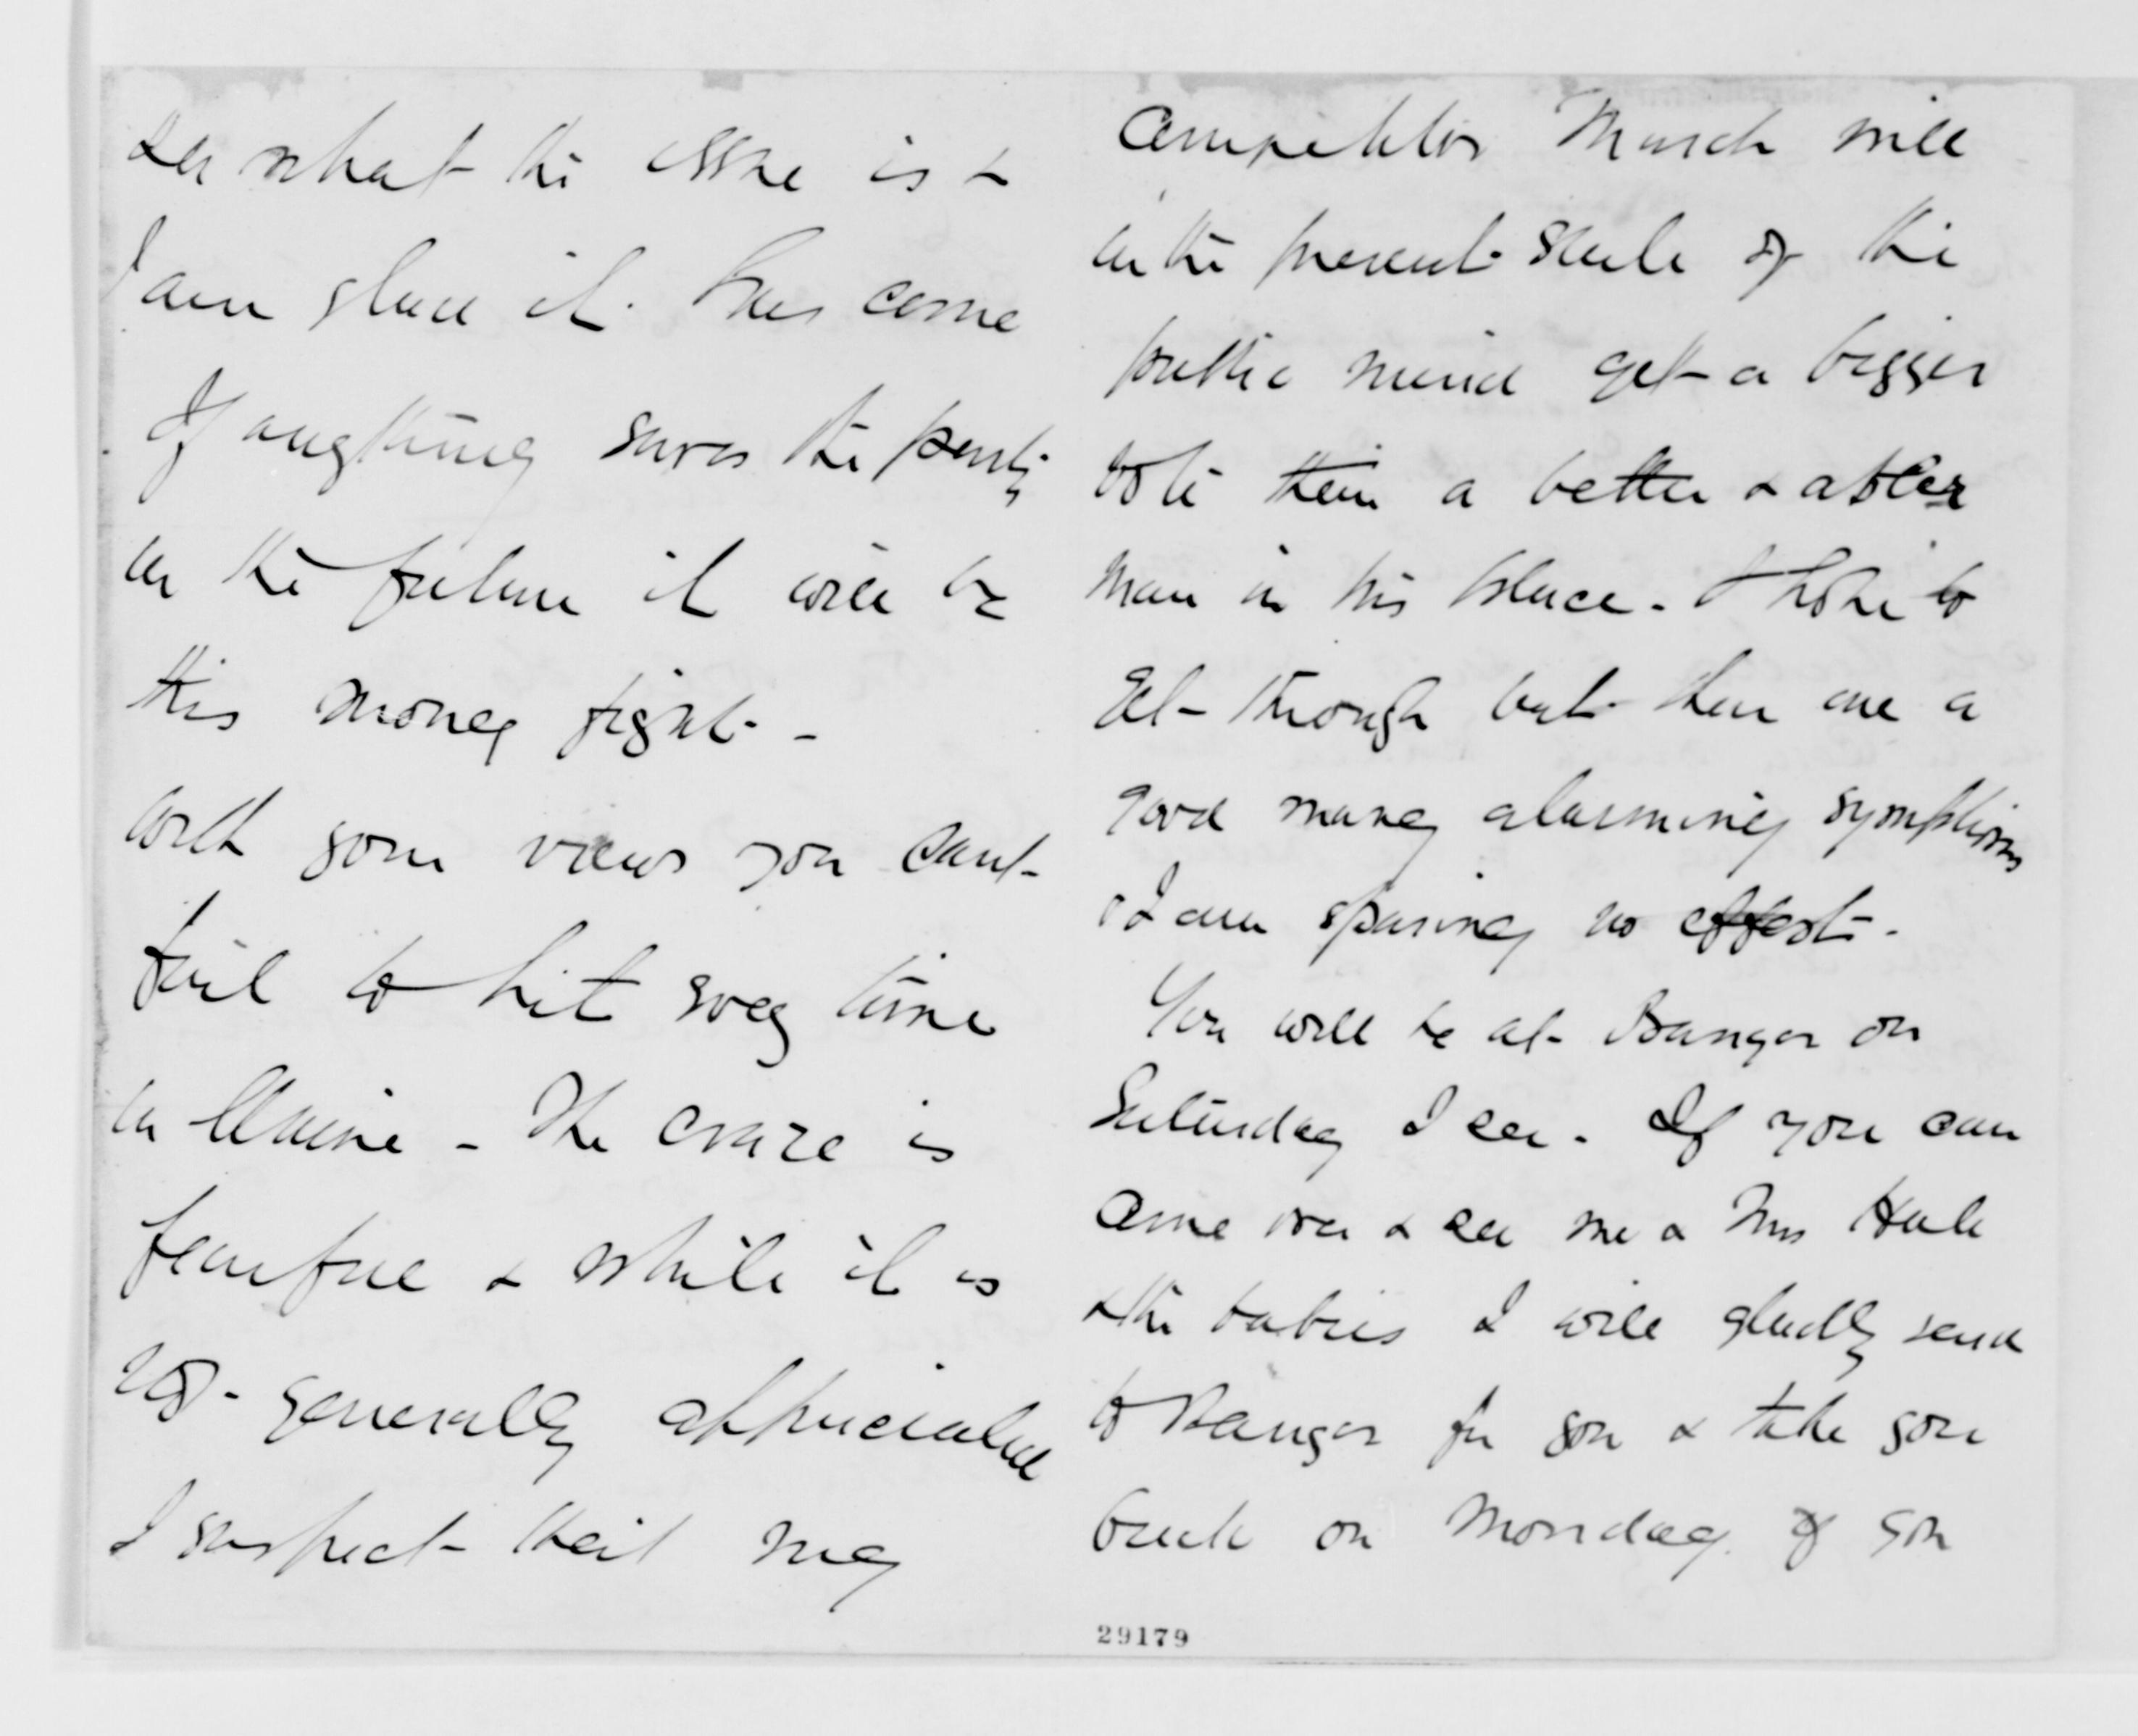 see what the issue is &
I am glad it has come
If anything saves the party
in the future it will be
this money fight -
with your views you cant
fail to hit every time
in Maine - The craze is
fearful & while it is
not generally appreciated
I suspect that my
competitor March will
in the present state of the
public mind get a bigger
vote than a better & abler
man in his place. I hope to
get through but there are a
good many alarming symptoms
& I am sparing no effort -
You will be at Bangor on
Saturday I see. If you can
come over & see me & Mrs Hale
& the babies I will gladly send
to Bangor for you & take you
back on Monday if you
29179